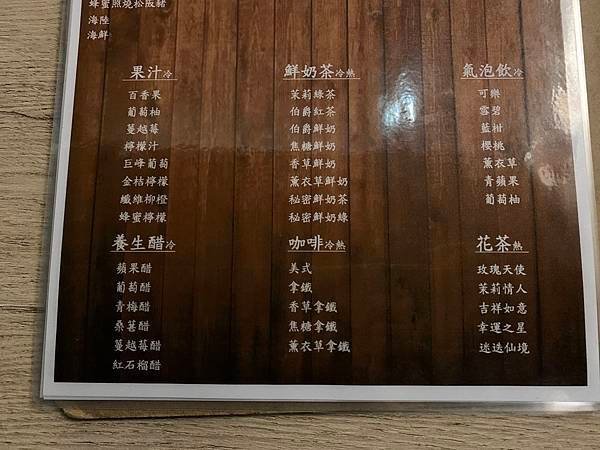 蜂蜜照燒松阪豬
海陸
海鮮
果汁冷
百香果
葡萄柚
蔓越莓
檸檬汁
巨峰葡萄
金桔檸檬
纖維柳橙
蜂蜜檸檬
鮮奶茶冷熱
茉莉綠茶
伯爵紅茶
伯爵鮮奶
焦糖鮮奶
香草鮮奶
薰衣草鮮奶
秘密鮮奶茶
秘密鮮奶綠
氣泡飲冷
可樂
雪碧
藍柑
櫻桃
薰衣草
青蘋果
葡萄柚
養生醋冷
蘋果醋
葡萄醋
青梅醋
桑葚醋
蔓越莓醋
紅石榴醋
咖啡冷熱
美式
拿鐵
香草拿鐵
焦糖拿鐵
薰衣草拿鐵
花茶熱
玫瑰天使
茉莉情人
吉祥如意
幸運之星
迷迭仙境